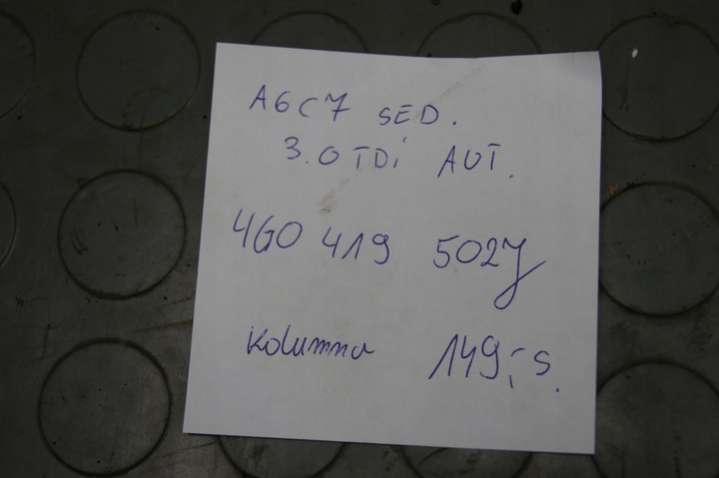 A6C7 SED.
3.0 TDi AUT.
4G0 419 502J
Kolumna 149,- S.